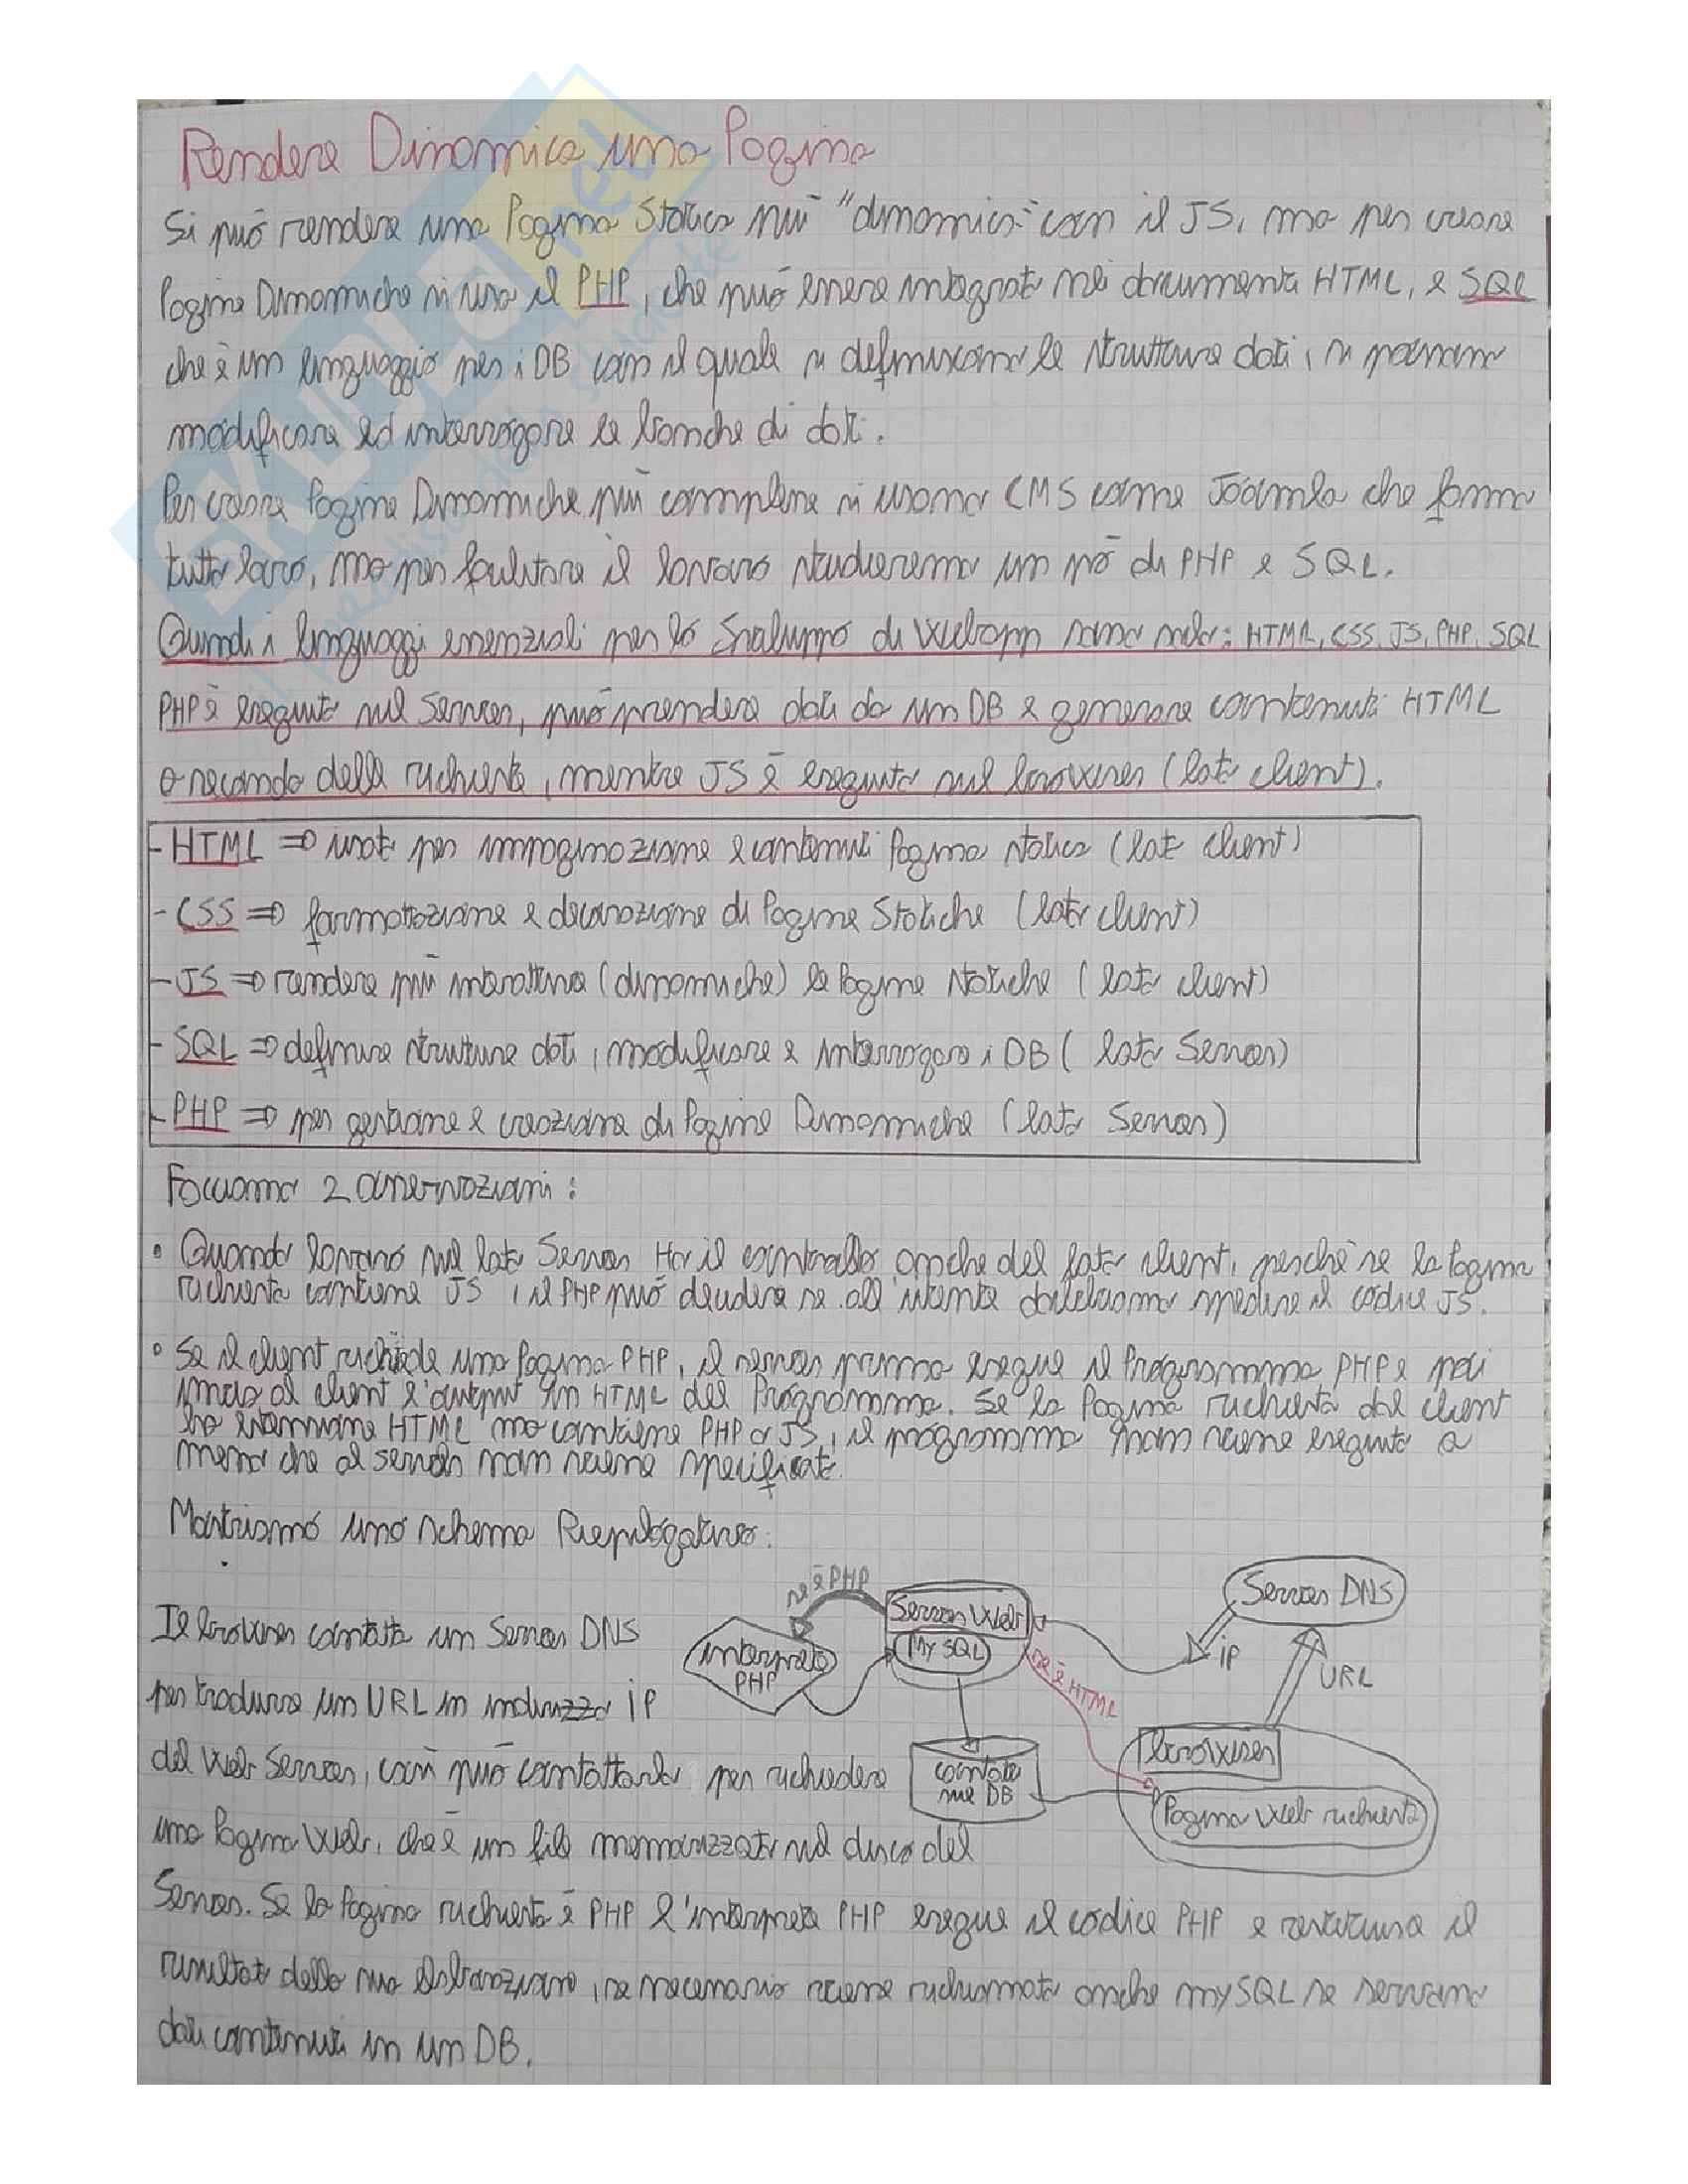 Rendere Dinamica una Pagina
Si può rendere una Pagina Statica più "dinamica" con il JS, ma per creare
Pagine Dinamiche si usa il PHP, che può essere integrato nei documenti HTML, e SQL
che è un linguaggio per i DB con il quale si definiscono le strutture dati, si possono
modificare ed interrogare le banche di dati.
Per creare Pagine Dinamiche più complesse si usano CMS come Joomla che fanno
tutto loro, ma per facilitare il lavoro studieremo un pò di PHP e SQL.
Quindi i linguaggi essenziali per lo Sviluppo di Webapp sono solo: HTML, CSS, JS, PHP, SQL
PHP è eseguito sul Server, può prendere dati da un DB e generare contenuti HTML
a seconda della richiesta, mentre JS è eseguito sul browser (lato client).
- HTML => usato per impaginazione e contenuti Pagina statica (lato client)
- CSS => formattazione e decorazione di Pagine Statiche (lato client)
- JS => rendere più interattive (dinamiche) le Pagine statiche (lato client)
- SQL => definire strutture dati, modificare e interrogare i DB (lato Server)
- PHP => per gestione e creazione di Pagine Dinamiche (lato Server)
Facciamo 2 osservazioni:
• Quando lavoro sul lato Server Ho il controllo anche del lato client, perchè se la Pagina
richiesta contiene JS, il PHP può decidere se all'utente dobbiamo spedire il codice JS.
• Se il client richiede una Pagina PHP, il server prima esegue il Programma PHP e poi
invia al client l'output in HTML del Programma. Se la Pagina richiesta dal client
ha estensione HTML ma contiene PHP o JS, il programma non viene eseguito a
meno che al server non viene specificato.
Mostriamo uno schema Riepilogativo:
se è PHP
Server Web
Server DNS
interprete
PHP
My SQL
ip
URL
se è HTML
browser
Pagina Web richiesta
DB
Il browser contatta un Server DNS
per tradurre un URL in indirizzo ip
del Web Server, così può contattarlo per richiedere
una Pagina Web, che è un file memorizzato nel disco del
Server. Se la Pagina richiesta è PHP l'interprete PHP esegue il codice PHP e restituisce il
risultato della sua elaborazione, se necessario viene richiamato anche mySQL se servono
dati contenuti in un DB.
SKUOLA.net